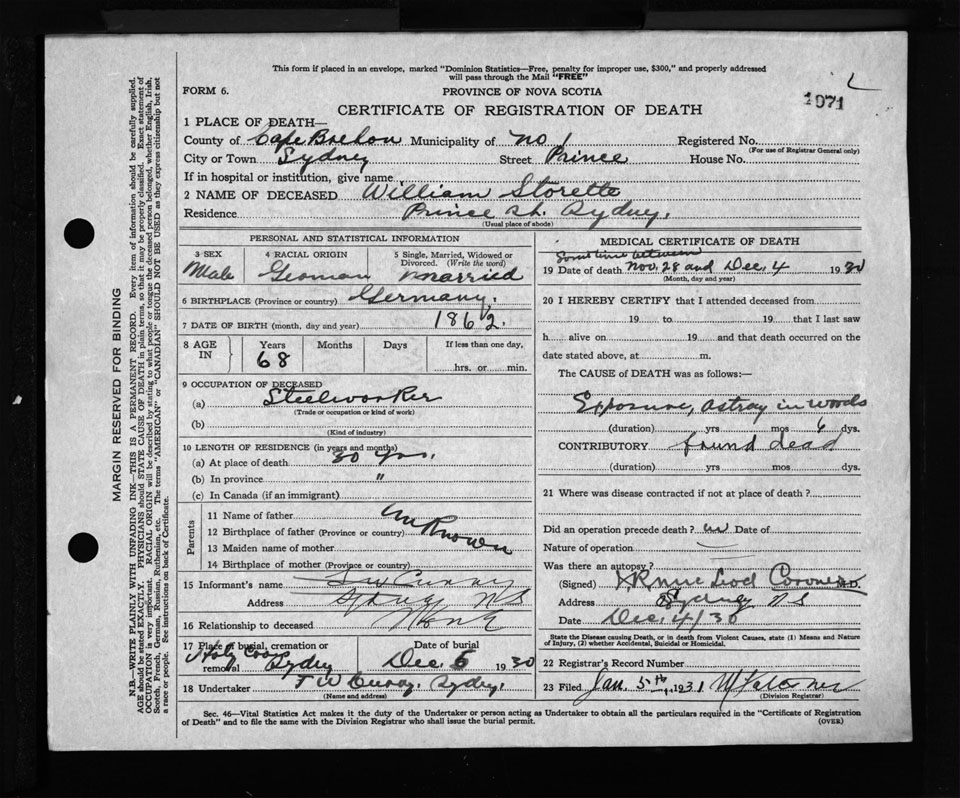 This form if placed in an envelope, marked "Dominion Statistics—Free, penalty for improper use, $300," and properly addressed
will pass through the Mail "FREE"
FORM 6.
PROVINCE OF NOVA SCOTIA
1071
CERTIFICATE OF REGISTRATION OF DEATH
1 PLACE OF DEATH—
County of Cape Breton Municipality of no 1 Registered No.
(For use of Registrar General only)
City or Town Sydney Street Prince House No.
If in hospital or institution, give name
2 NAME OF DECEASED William Storette
Residence Prince St. Sydney.
(Usual place of abode)
PERSONAL AND STATISTICAL INFORMATION
3 SEX Male
4 RACIAL ORIGIN German
5 Single, Married, Widowed or Divorced. (Write the word) married
6 BIRTHPLACE (Province or country) Germany.
7 DATE OF BIRTH (month, day and year) 1862.
8 AGE IN Years 68 Months Days If less than one day, hrs. or min.
9 OCCUPATION OF DECEASED
(a) Steelworker
(Trade or occupation or kind of work)
(b)
(Kind of industry)
10 LENGTH OF RESIDENCE (in years and months)
(a) At place of death 30 yrs.
(b) In province "
(c) In Canada (if an immigrant)
Parents
11 Name of father Unknown
12 Birthplace of father (Province or country)
13 Maiden name of mother
14 Birthplace of mother (Province or country)
15 Informant's name Curry
Address Sydney N S
16 Relationship to deceased None
17 Place of burial, cremation or removal Holy Cross Sydney
Date of burial Dec 5 1930
18 Undertaker F W Curry, Sydney.
(Name and address)
MEDICAL CERTIFICATE OF DEATH
Some time between
19 Date of death Nov. 28 and Dec. 4 1930
(Month, day and year)
20 I HEREBY CERTIFY that I attended deceased from
19 to 19 that I last saw
h alive on 19 and that death occurred on the
date stated above, at m.
The CAUSE of DEATH was as follows:—
Exposure, astray in woods
(duration) yrs mos 6 dys.
CONTRIBUTORY found dead
(duration) yrs mos dys.
21 Where was disease contracted if not at place of death?
Did an operation precede death? no Date of
Nature of operation
Was there an autopsy?
(Signed) Coroner M.D.
Address Sydney N S
Date Dec. 4/30
State the Disease causing Death, or in death from Violent Causes, state (1) Means and Nature
of Injury, (2) whether Accidental, Suicidal or Homicidal.
22 Registrar's Record Number
23 Filed Jan. 5th, 1931
(Division Registrar)
Sec. 46—Vital Statistics Act makes it the duty of the Undertaker or person acting as Undertaker to obtain all the particulars required in the "Certificate of Registration
of Death" and to file the same with the Division Registrar who shall issue the burial permit.
(OVER)
MARGIN RESERVED FOR BINDING
N.B.—WRITE PLAINLY WITH UNFADING INK—THIS IS A PERMANENT RECORD. Every item of information should be carefully supplied.
AGE should be stated EXACTLY. PHYSICIANS should STATE CAUSE OF DEATH in plain terms, so that it may be properly classified. Exact statement of
OCCUPATION is very important. RACIAL ORIGIN will be described by stating to what people or tongue the deceased person belonged, whether English, Irish,
Scotch, French, German, Russian, Ruthenian, etc. The terms "AMERICAN" or "CANADIAN" SHOULD NOT BE USED as they express citizenship but not
a race or people. See instructions on back of Certificate.